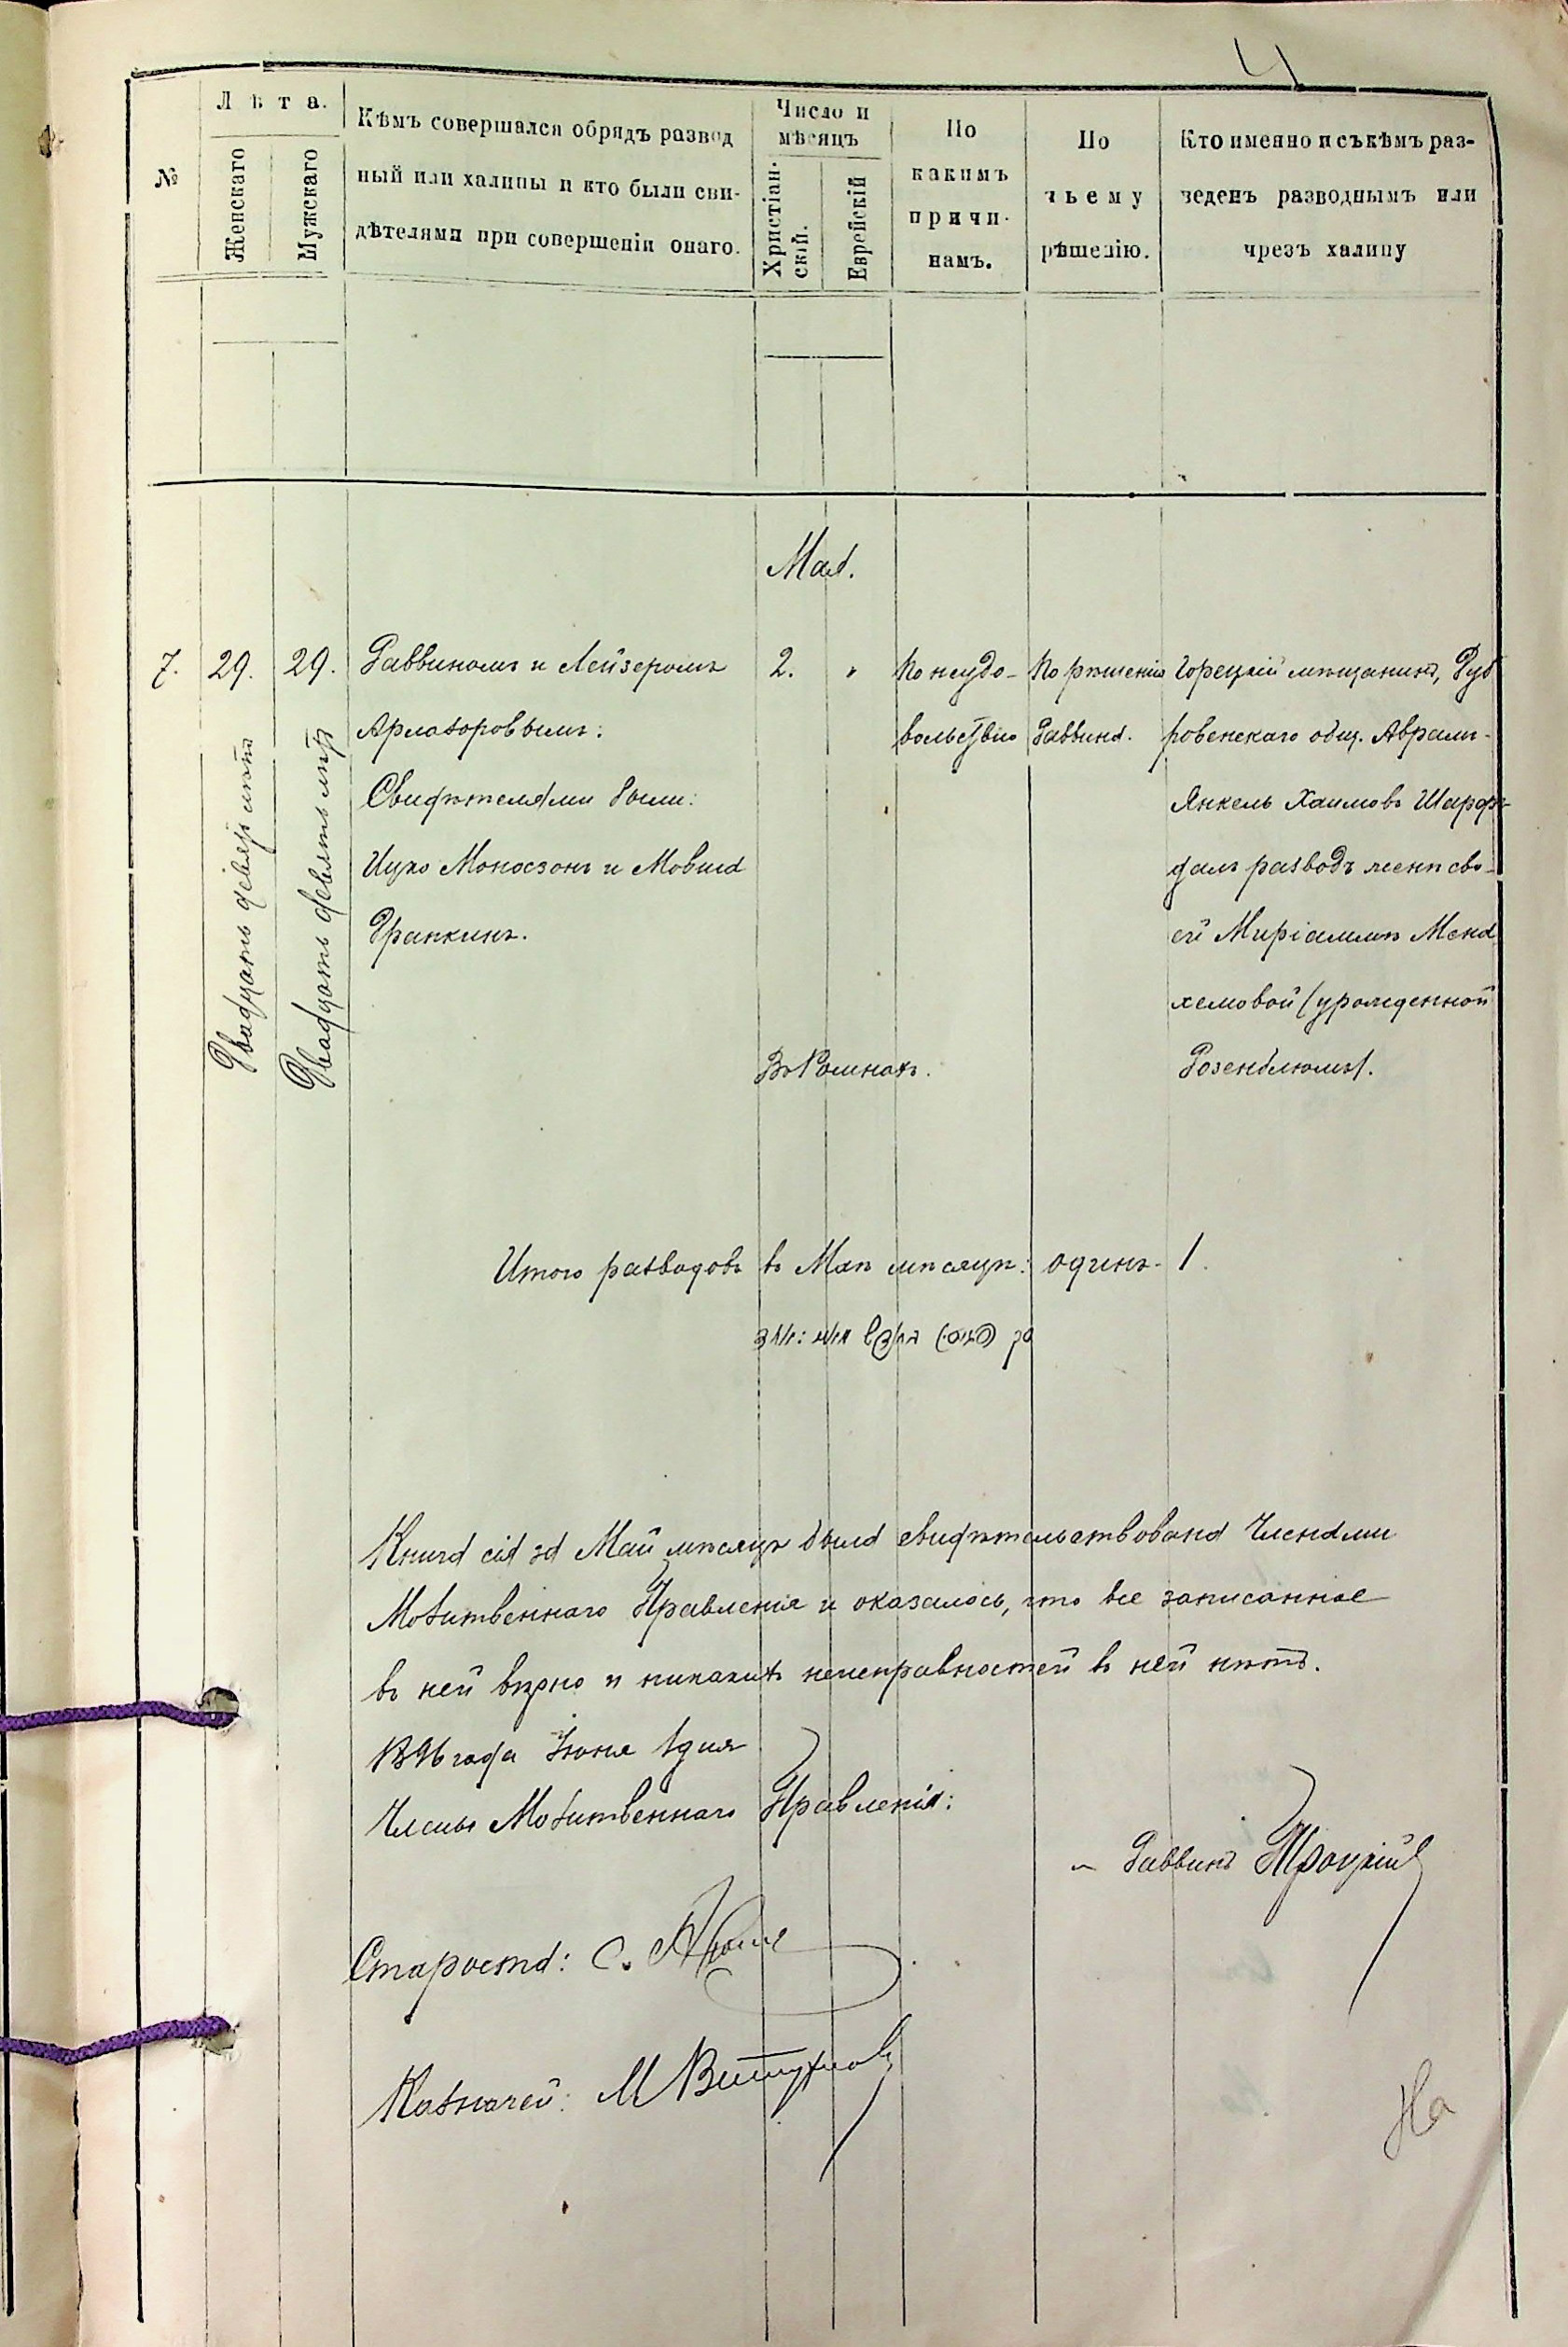 4
№
Лѣта.
Женскаго
Мужскаго
Кѣмъ совершался обрядъ развод
ный или халицы и кто были сви-
дѣтелями при совершеніи онаго.
Число и
мѣсяцъ
Христіан-
скій.
Еврейскій
По
какимъ
причи-
намъ.
По
чьему
рѣшенію.
Кто именно и съ кѣмъ раз-
веденъ разводнымъ или
чрезъ халицу
Мая.
7.
29.
Двадцать девять лѣтъ
29.
Двадцать девять лѣтъ
Раввиномъ и Лейзеромъ
Арлозоровымъ:
Свидѣтелями были:
Ицко Моносзонъ и Мовша
Драпкинъ.
2.
"
Въ Ромнахъ.
По неудо-
вольствію
По рѣшенію
Раввина.
Горецкій мѣщанинъ, Дуб
ровенскаго общ. Аврамъ-
Янкель Хаимовъ Шарфъ
далъ разводъ женѣ сво-
ей Миріаммѣ Мена
хемовой (урожденной
Розенблюмъ).
Итого разводовъ въ Маѣ мѣсяцѣ: одинъ- 1.
Книга сія за Май мѣсяцъ была свидѣтельствована Членами
Молитвеннаго Правленія и оказалось, что все записанное
въ ней вѣрно и никакихъ неисправностей въ ней нѣтъ.
1896 года Іюня 1 дня
Члены Молитвеннаго Правленія:
Раввинъ Троцкій
Староста: С.
Казначей: М
На